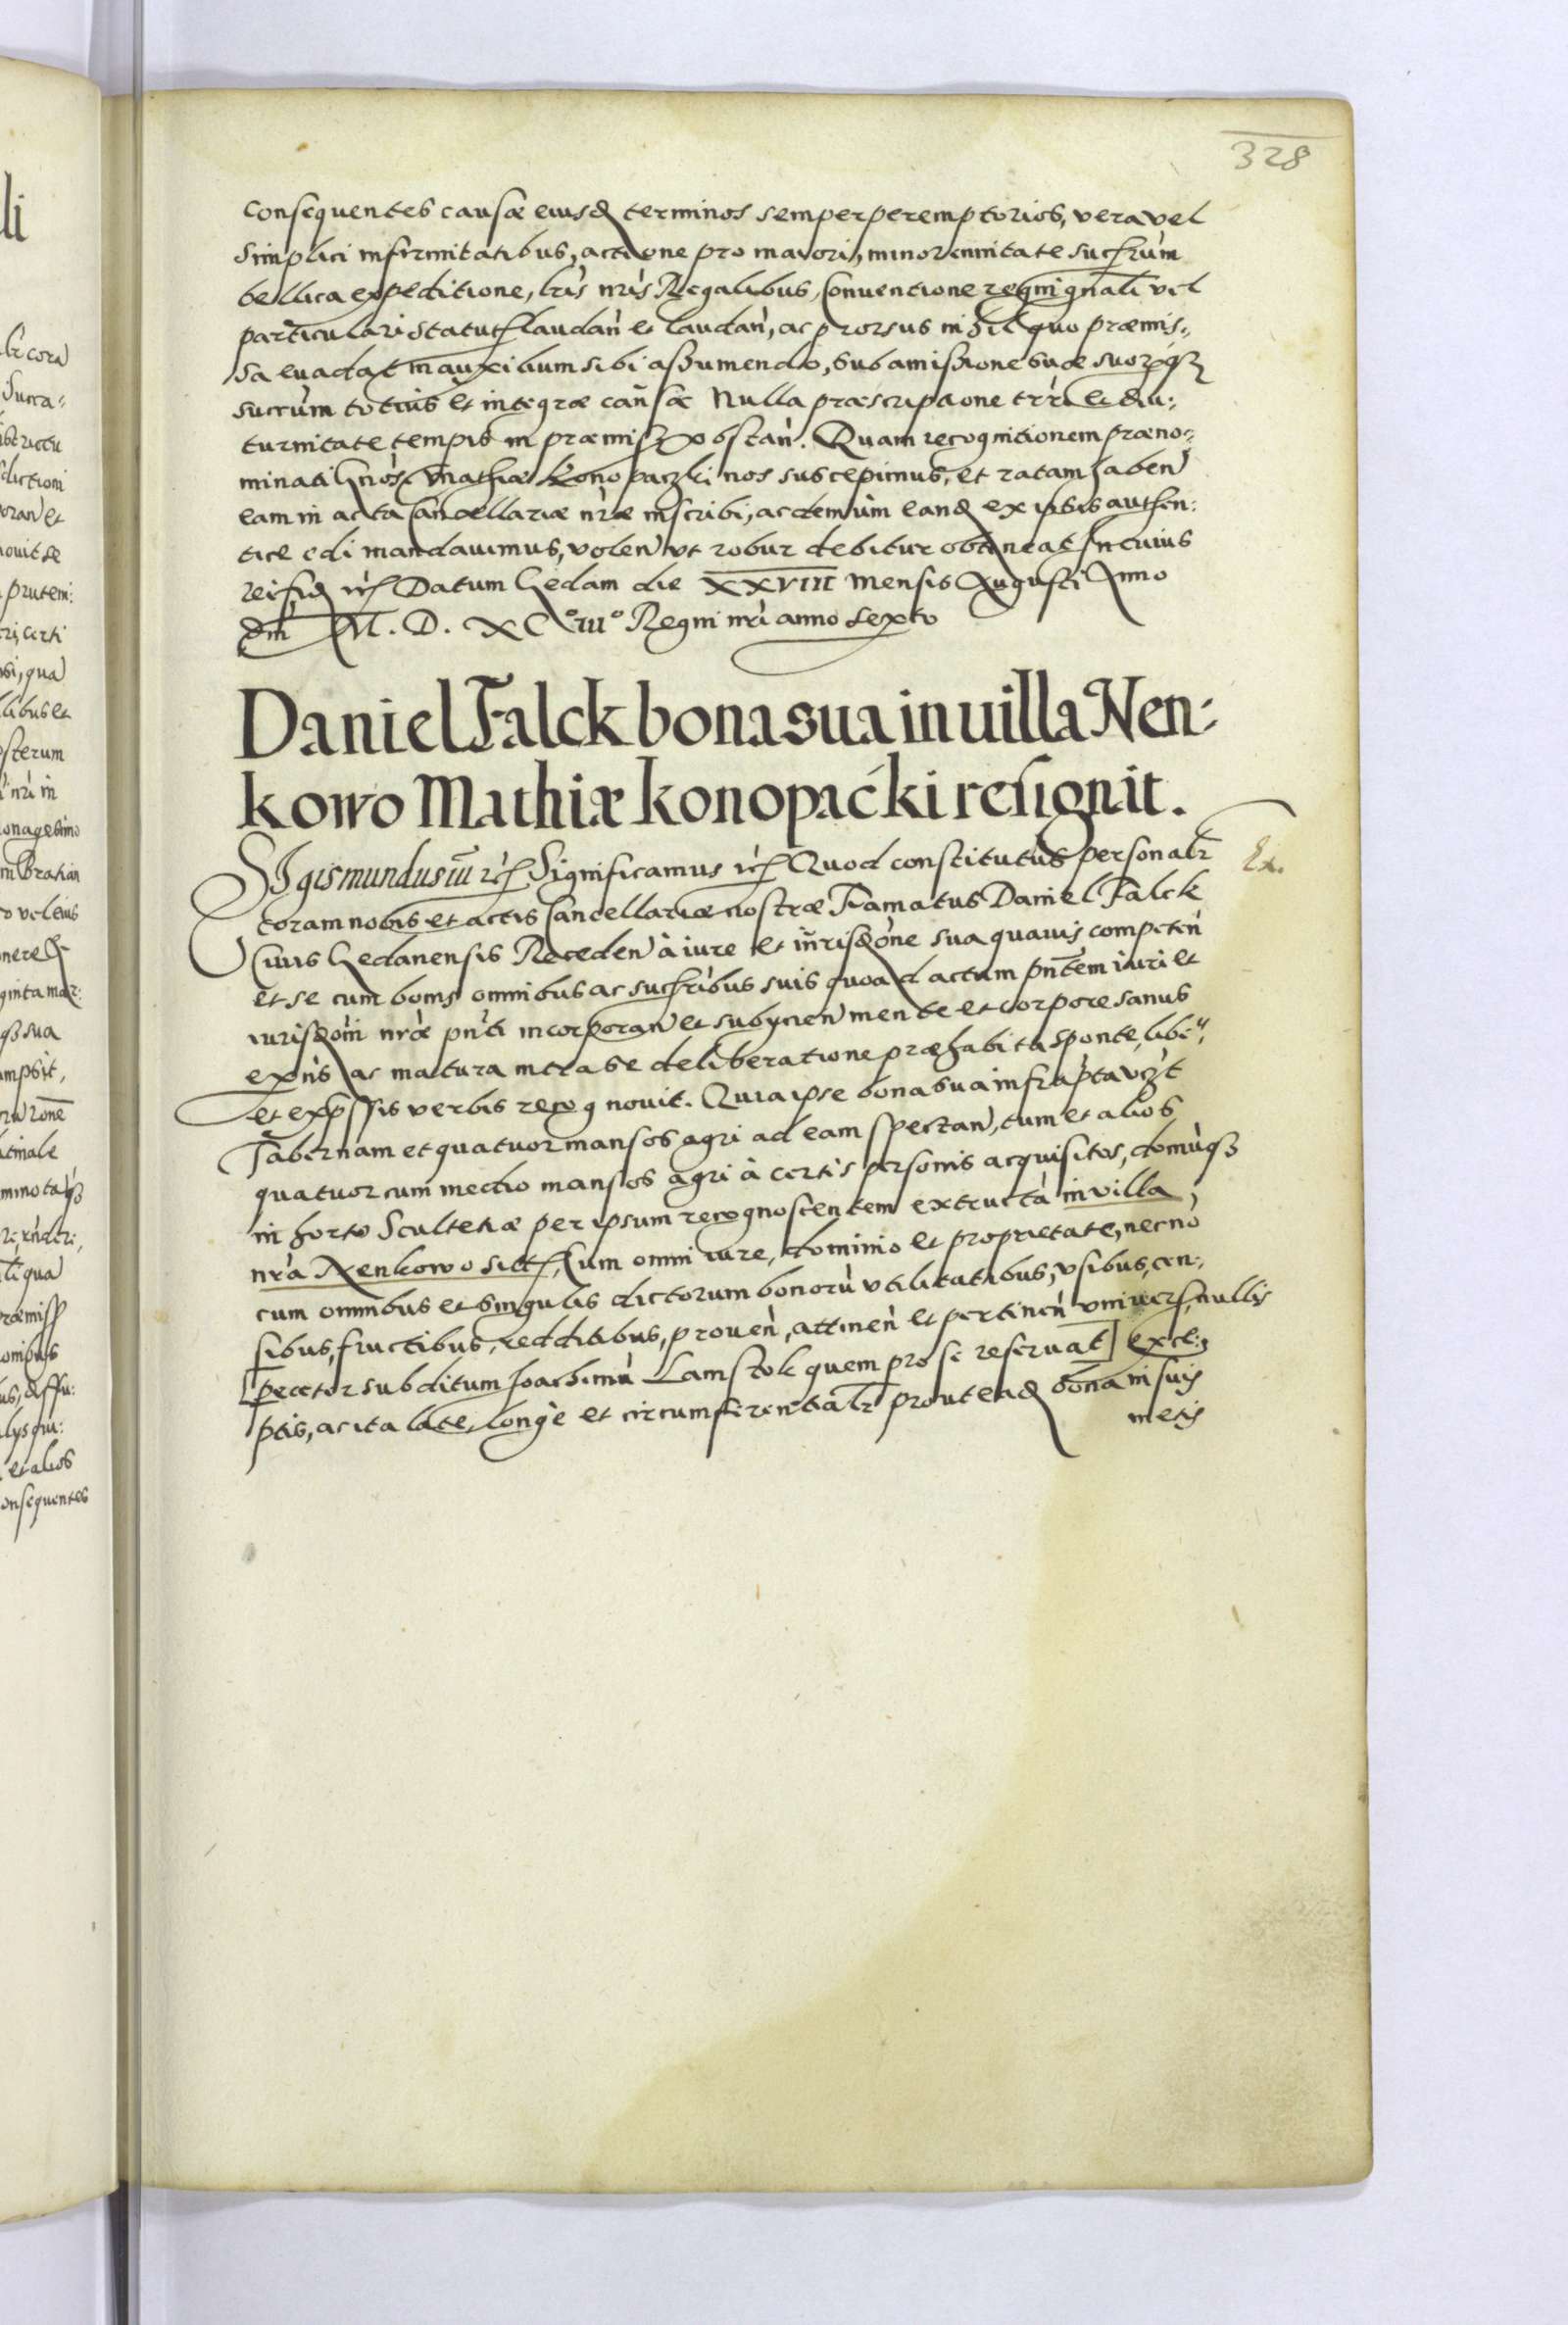 328
consequentes causæ eiusd terminos semper peremptorios, vera vel
simplici infirmitatibus, actione pro maiori, minorennitate succrum
bellica expeditione, lris nris Regalibus, Conventione regni gnali vel
particulari statut laudan et laudan, ac prorsus nihil quo præmis,,
sa evadat in auxilium sibi assumendo, sub amissione suæ suorqz
succrum totius et integræ causæ Nulla præscriptione trri et diu:
turnitate tempis in præmiss obstan. Quam recognitionem præno:
minati Gnosi Mathiæ Konopaczki nos suscepimus, et ratam haben
eam in acta Cancellariæ nræ inscribi, ac demum eand ex ipsis authen:
tice edi mandavimus, volen vt robur debitur obtineat In cuius
rei fid etc Datum Gedani die XXVIII mensis Augusti Anno
dni M. D. XC°iii° Regni nri anno sexto
Daniel Falck bona sua in uilla Nen:
kowo Mathiæ Konopacki resignit.
Sigismundus iii etc. Significamus etc Quod constitutus personalr
Ex.
coram nobis et actis Cancellariæ nostræ Famatus Daniel Falck
Civis Gedanensis Receden à iure et iurisdone sua quavis competen
et se cum bonis omnibus ac succribus suis quoad actum pntem iuri et
iurisdoni nræ pnti incorporan et subijcien mente et corpore sanus
exns ac matura in ea se deliberatione præhabita sponte, libe
et expssis verbis recognovit. Quia ipse bona sua infrapta vzt
Tabernam et quatuor mansos agri ad eam spectan, tum et alios
quatuor cum medio mansos agri à certis personis acquisitos, domuqz
in horto Scultetiæ per ipsum recognoscentem extructa in villa,
nra Nenkowo sitt, Cum omni iure, dominio et proprietate, necno
cum omnibus et singulis dictorum bonoru vtilitatibus, vsibus, cen:
sibus, fructibus, redditibus, proven, attinen et pertinen vnivers, nullis
[pręter subditum Joachimu Lamstok quem pro se reservat] exce:,
ptis, ac ita late, longe et circumferentialr prout ead bona in suis
metis